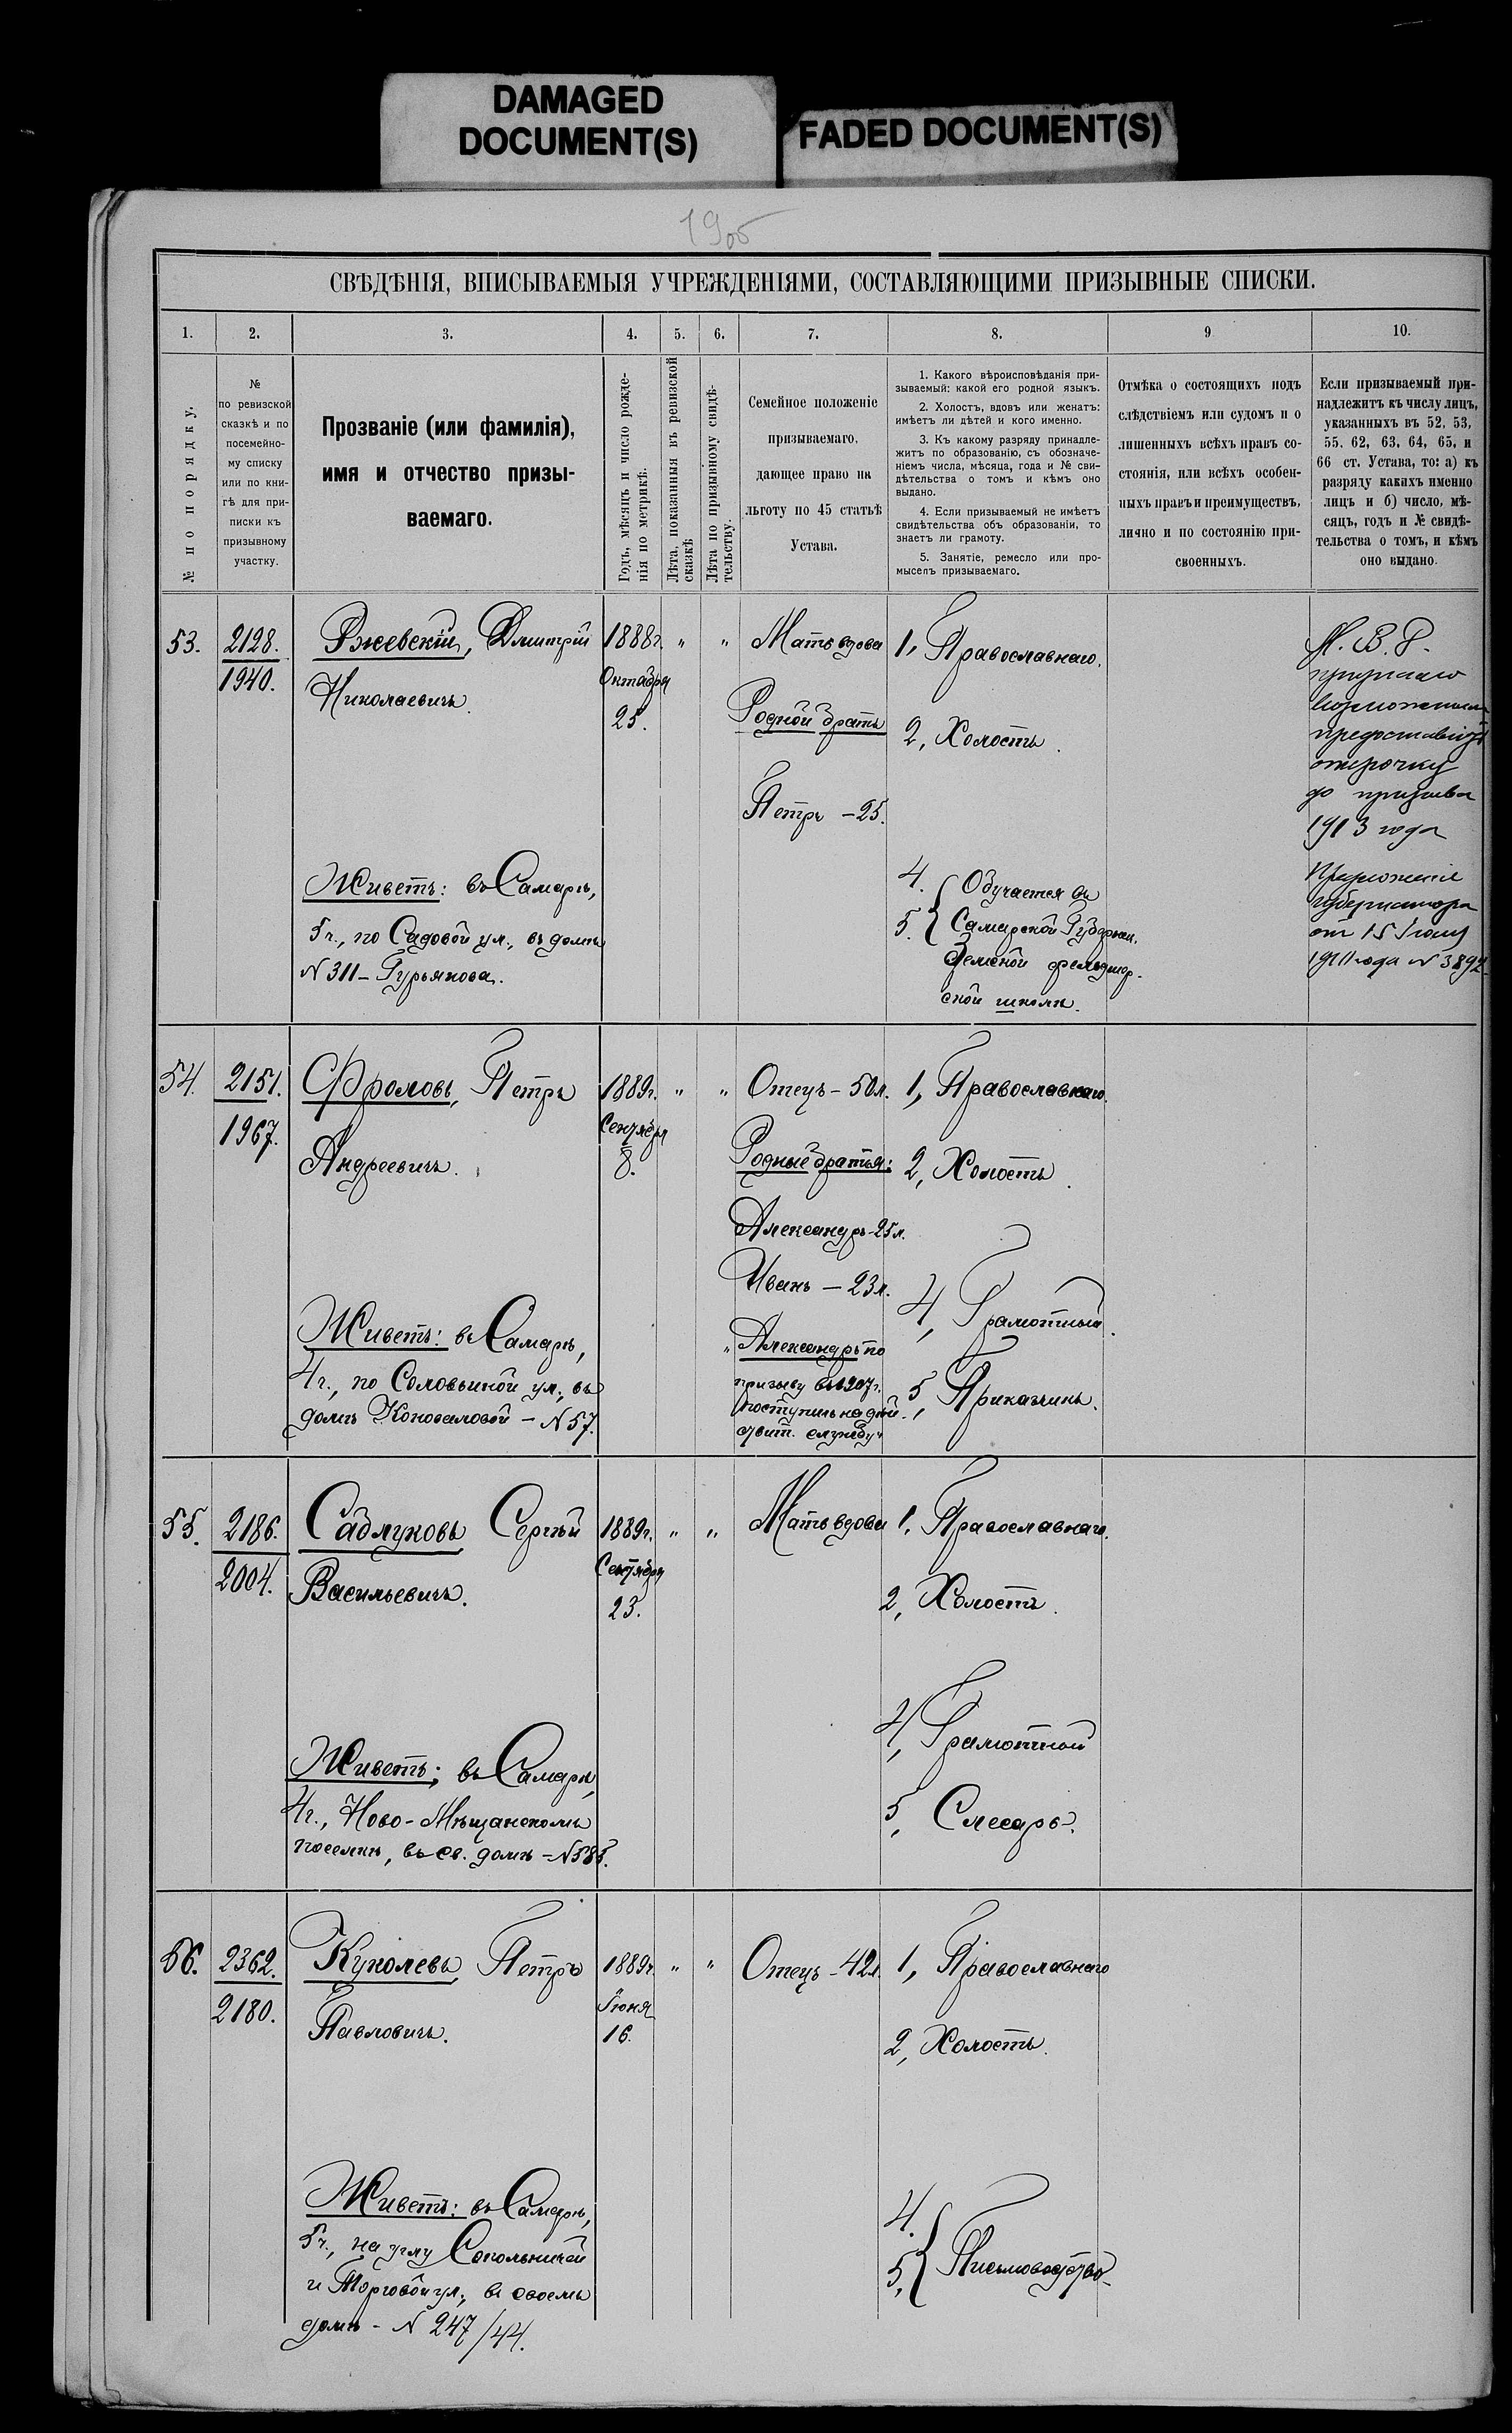 DAMAGED
DOCUMENT(S)
FADED DOCUMENT(S)
СВѢДѢНІЯ, ВПИСЫВАЕМЫЯ УЧРЕЖДЕНІЯМИ, СОСТАВЛЯЮЩИМИ ПРИЗЫВНЫЕ СПИСКИ.
1.
2.
3.
4.
5.
6.
7.
8.
9
10.
№ по порядку.
№
по ревизской
сказкѣ и по
посемейно-
му списку
или по кни-
гѣ для при-
писки къ
призывному
участку.
Прозваніе (или фамилія),
имя и отчество призы-
ваемаго.
Годъ, мѣсяцъ и число рожде-
нія по метрикѣ.
Лѣта, показанныя въ ревизской
сказкѣ
Лѣта по призывному свидѣ-
тельству.
Семейное положеніе
призываемаго,
дающее право на
льготу по 45 статьѣ
Устава.
1. Какого вѣроисповѣданія при-
зываемый: какой его родной языкъ.
2. Холостъ, вдовъ или женатъ:
имѣетъ ли дѣтей и кого именно.
3. Къ какому разряду принадле-
житъ по образованію, съ обозначе-
ніемъ числа, мѣсяца, года и № сви-
дѣтельства о томъ и кѣмъ оно
выдано.
4. Если призываемый не имѣетъ
свидѣтельства объ образованіи, то
знаетъ ли грамоту.
5. Занятіе, ремесло или про-
мыселъ призываемаго.
Отмѣка о состоящихъ подъ
слѣдствіемъ или судомъ и о
лишенныхъ всѣхъ правъ со-
стоянія, или всѣхъ особен-
ныхъ правъ и преимуществъ,
лично и по состоянію при-
своенныхъ.
Если призываемый при-
надлежитъ къ числу лицъ,
указанныхъ въ 52, 53,
55. 62, 63, 64, 65, и
66 ст. Устава, то: а) къ
разряду какихъ именно
лицъ и б) число, мѣ-
сяцъ, годъ и № свидѣ-
тельства о томъ, и кѣмъ
оно выдано.
53.
2128.
1940.
Ржевскій, Дмитрій
Николаевичъ.
Живетъ: въ Самарѣ,
5 ч., по Садовой ул., въ домѣ
N 311 – Гурьянова.
1888 г.
Октября
25.
"
"
Мать вдова
Родной братъ
Петръ – 25.
1, Православнаго.
2, Холостъ.
4.
5. { Обучается въ
Самарской Губернн.
Земской фельдшер-
ской школѣ.
М. В. Д.
признало
возможнымъ
предоставить
отсрочку
до призыва
1913 года
Предложеніе
губернатора
от 15 Іюня
1911 года N 3892
54.
2151.
1967.
Фроловъ, Петръ
Андреевичъ.
Живетъ: въ Самарѣ,
4 ч., по Соловьиной ул., въ
домѣ Коноваловой – N 57.
1889 г.
Сентября
8.
"
"
Отецъ – 50 л.
Родные братья:
Александръ – 25 л.
Иванъ – 23 л.
" Александръ по
призыву въ 1907 г.
поступилъ на дѣй-
ствит. службу"
1, Православнаго.
2, Холостъ.
4, Грамотный.
5, Приказчикъ.
55.
2186.
2004.
Садлуковъ Сергѣй
Васильевичъ.
Живетъ: въ Самарѣ,
4 ч., Ново-Мѣщанскомъ
поселкѣ, въ св. домѣ – N 585.
1889 г.
Сентября
23.
"
"
Мать вдова
1, Православнаго.
2, Холостъ.
4, Грамотный
5, Слесарь.
56.
2362.
2180.
Куколевъ, Петръ
Павловичъ.
Живетъ: въ Самарѣ,
5 ч., на углу Сокольничей
и Торговой ул., въ своемъ
домѣ – N 247/44.
1889 г.
Іюня
16.
"
"
Отецъ – 42 л.
1, Православнаго
2, Холостъ.
4.
5, { Письмоводство